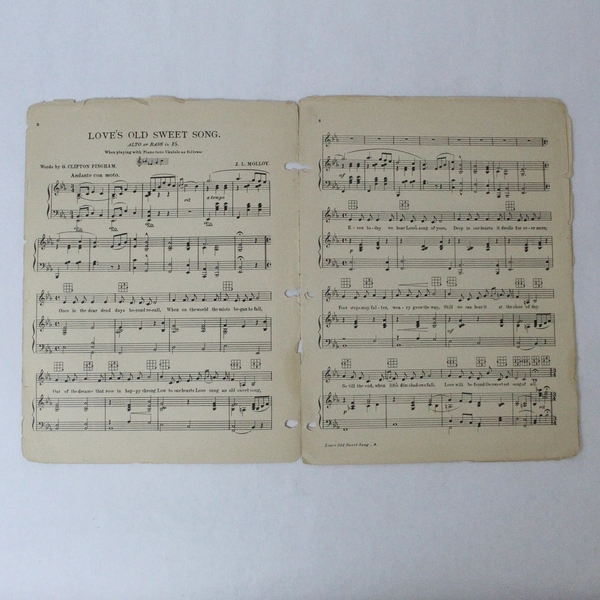 LOVE'S OLD SWEET SONG.
ALTO or BASS in E♭.
When playing with Piano tune Ukulele as follows:
Words by G. CLIFTON BINGHAM.
J. L. MOLLOY.
Andante con moto.
a tempo
Once in the dear dead days beyond recall, When on the world the mists began to fall,
Out of the dreams that rose in happy throng Low to our hearts Love sang an old sweet song,
mf
E-ven to-day we hear Love's song of yore, Deep in our hearts it dwells for ev-er more,
Foot steps may fal-ter, wea-ry grow the way, Still we can hear it at the close of day,
So till the end, when life's dim shadows fall, Love will be found the sweetest song of all.
p
Love's Old Sweet Song.